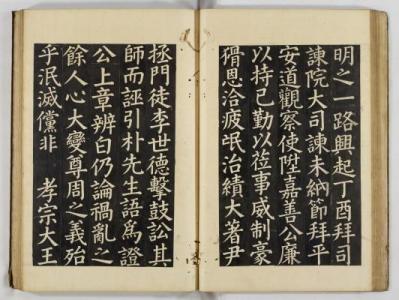 明之一路興起丁酉拜司
諫院大司諫未納節拜平
安道觀察使陞嘉善公廉
以持己勤以莅事威制豪
猾恩洽疲氓治績大著尹
拯門徒李世德擊鼓訟其
師而誣引朴先生語爲證
公上章辨白仍論禍亂之
餘人心大變尊周之義殆
乎泯滅儻非 孝宗大王